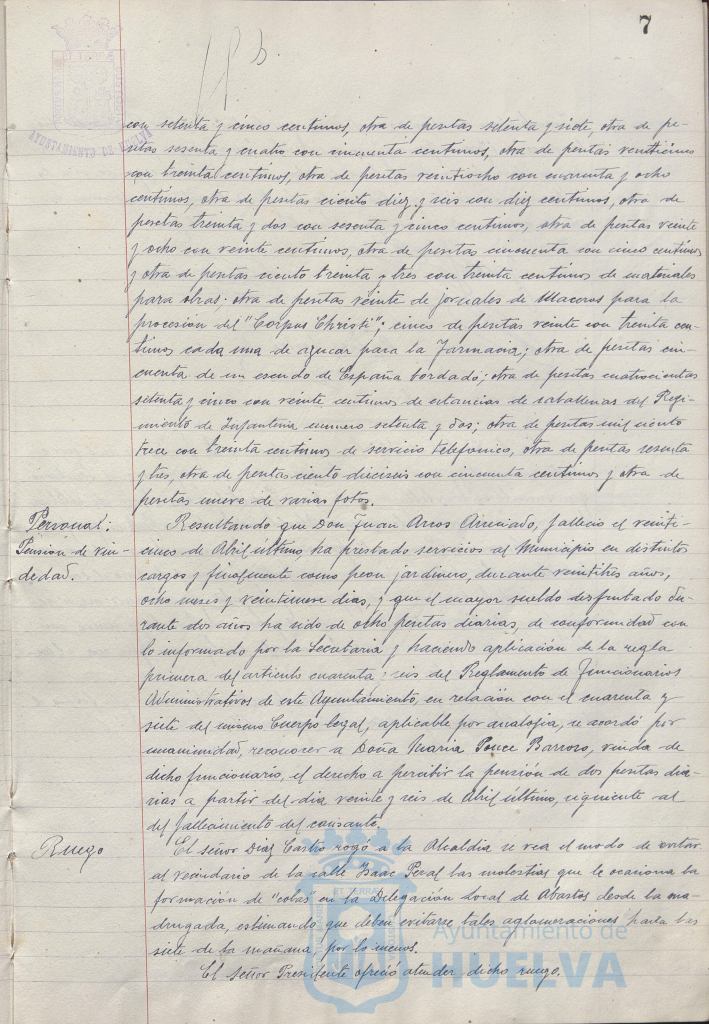 7
con setenta y cinco centimos, otra de pesetas setenta y siete, otra de pe-
setas sesenta y cuatro con cincuenta centimos, otra de pesetas veinticinco
con treinta centimos, otra de pesetas veintiocho con cuarenta y ocho
centimos, otra de pesetas ciento diez y seis con diez centimos, otra de
pesetas treinta y dos con sesenta y cinco centimos, otra de pesetas veinte
y ocho con veinte centimos, otra de pesetas cincuenta con cinco centimos
y otra de pesetas ciento treinta y tres con treinta centimos de materiales
para obras; otra de pesetas veinte de jornales de Maceros para la
procesión del "Corpus Christi"; cinco de pesetas veinte con treinta cen-
timos cada una de azucar para la Farmacia; otra de pesetas cin-
cuenta de un escudo de España bordado; otra de pesetas cuatrocientas
setenta y cinco con veinte centimos de estancias de caballerias del Regi-
miento de Infanteria numero setenta y dos; otra de pesetas mil ciento
trece con treinta centimos de servicio telefonico, otra de pesetas sesenta
y tres, otra de pesetas ciento dieciseis con cincuenta centimos y otra de
pesetas nueve de varias fotos.
Personal:
Pensión de viu-
dedad.
Resultando que Don Juan Arros fallecio el veinti-
cinco de Abril último, ha prestado servicios al Municipio en distintos
cargos y finalmente como peon jardinero, durante veintitres años,
ocho meses y veintinueve dias, y que el mayor sueldo disfrutado du-
rante dos años ha sido de ocho pesetas diarias, de conformidad con
lo informado por la Secretaria y haciendo aplicación de la regla
primera del articulo cuarenta y seis del Reglamento de Funcionarios
Administrativos de este Ayuntamiento, en relación con el cuarenta y
siete del mismo Cuerpo legal, aplicable por analogia, se acordó por
unanimidad, reconocer a Doña Maria Ponce Barroso, viuda de
dicho funcionario, el derecho a percibir la pensión de dos pesetas dia-
rias a partir del dia veinte y seis de Abril último, siguiente al
del fallecimiento del causante.
Ruego
El señor Diaz Castro rogó a la Alcaldia se vea el modo de evitar
al vecindario de la calle Isaac Peral las molestias que le ocasiona la
formación de "colas" en la Delegación Local de Abastos desde la ma-
drugada, estimando que deben evitarse tales aglomeraciones hasta las
siete de la mañana, por lo menos.
El señor Presidente ofreció atender dicho ruego.
Ayuntamiento de
HUELVA